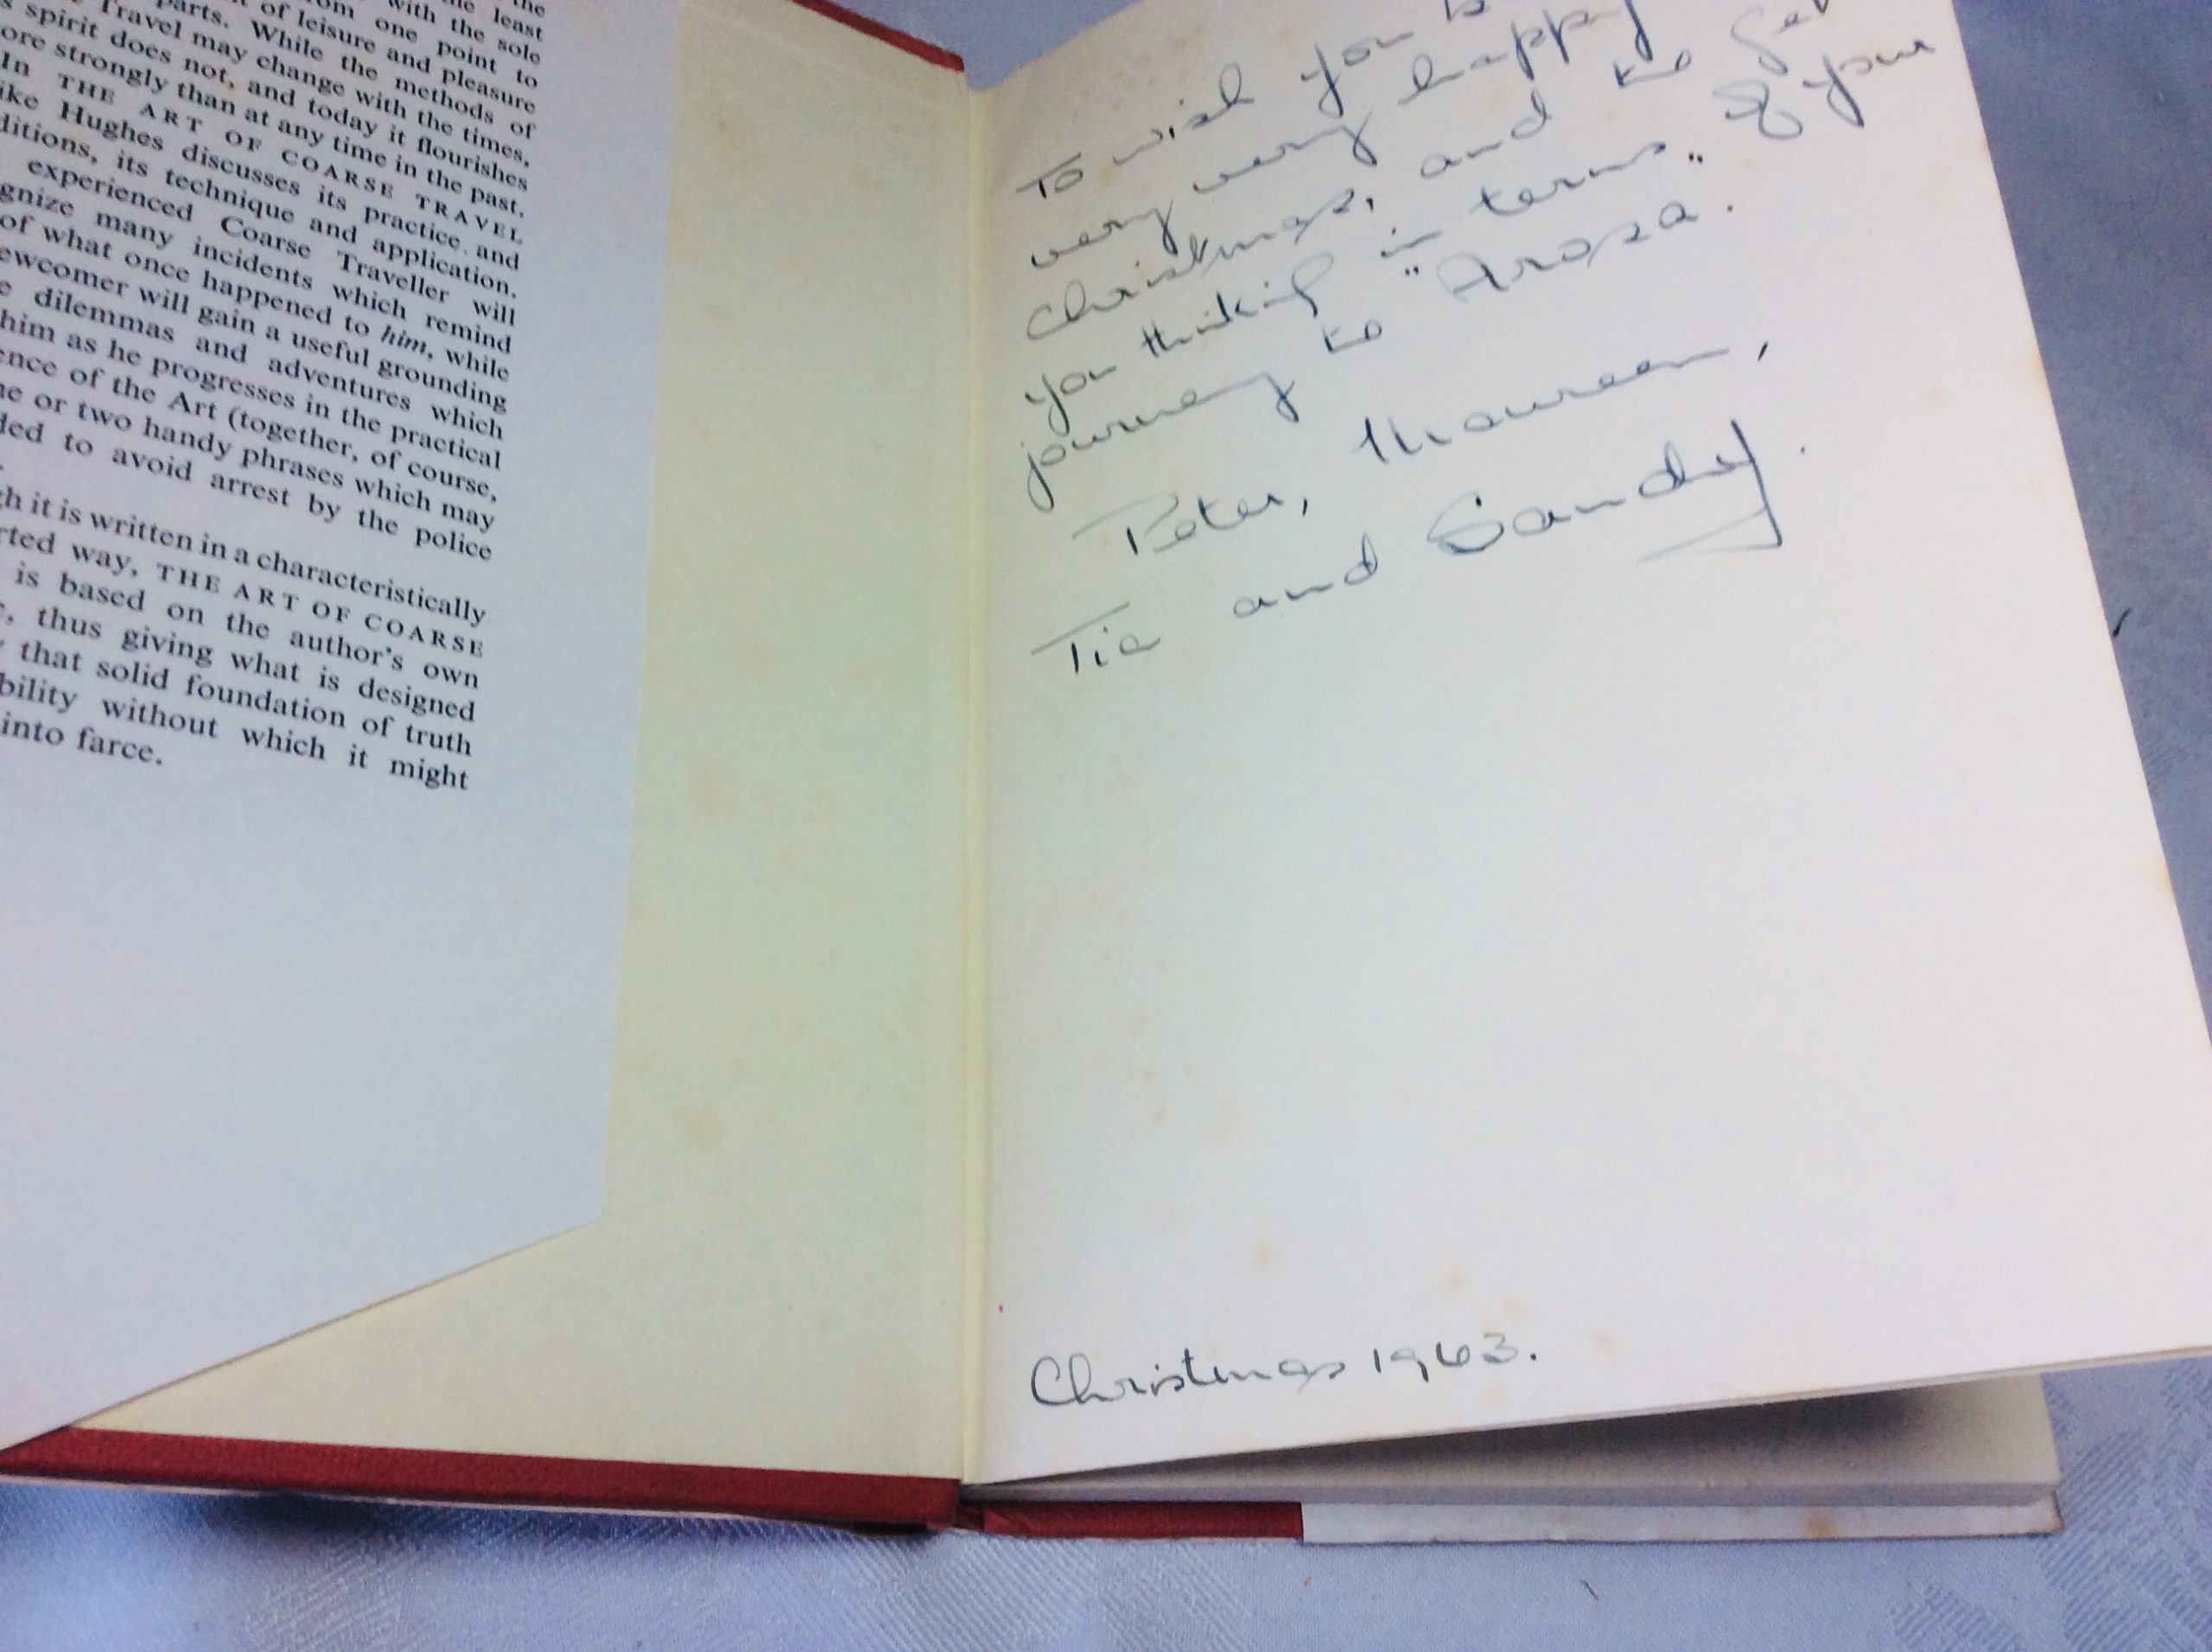 the
the least
with the sole
from one point to
of leisure and pleasure
parts. While the methods of
Travel may change with the times,
spirit does not, and today it flourishes
ore strongly than at any time in the past.
In THE ART OF COARSE TRAVEL
ike Hughes discusses its practice and
ditions, its technique and application.
experienced Coarse Traveller will
gnize many incidents which remind
of what once happened to him, while
ewcomer will gain a useful grounding
e dilemmas and adventures which
him as he progresses in the practical
ence of the Art (together, of course,
ne or two handy phrases which may
ded to avoid arrest by the police
gh it is written in a characteristically
rted way, THE ART OF COARSE
is based on the author's own
, thus giving what is designed
that solid foundation of truth
bility without which it might
into farce.
To wish you
very very happy
Christmas, and to get
you thinking "in terms" of your
journey to Arosa.
Peter, Maureen,
Tia and Sandy.
Christmas 1963.